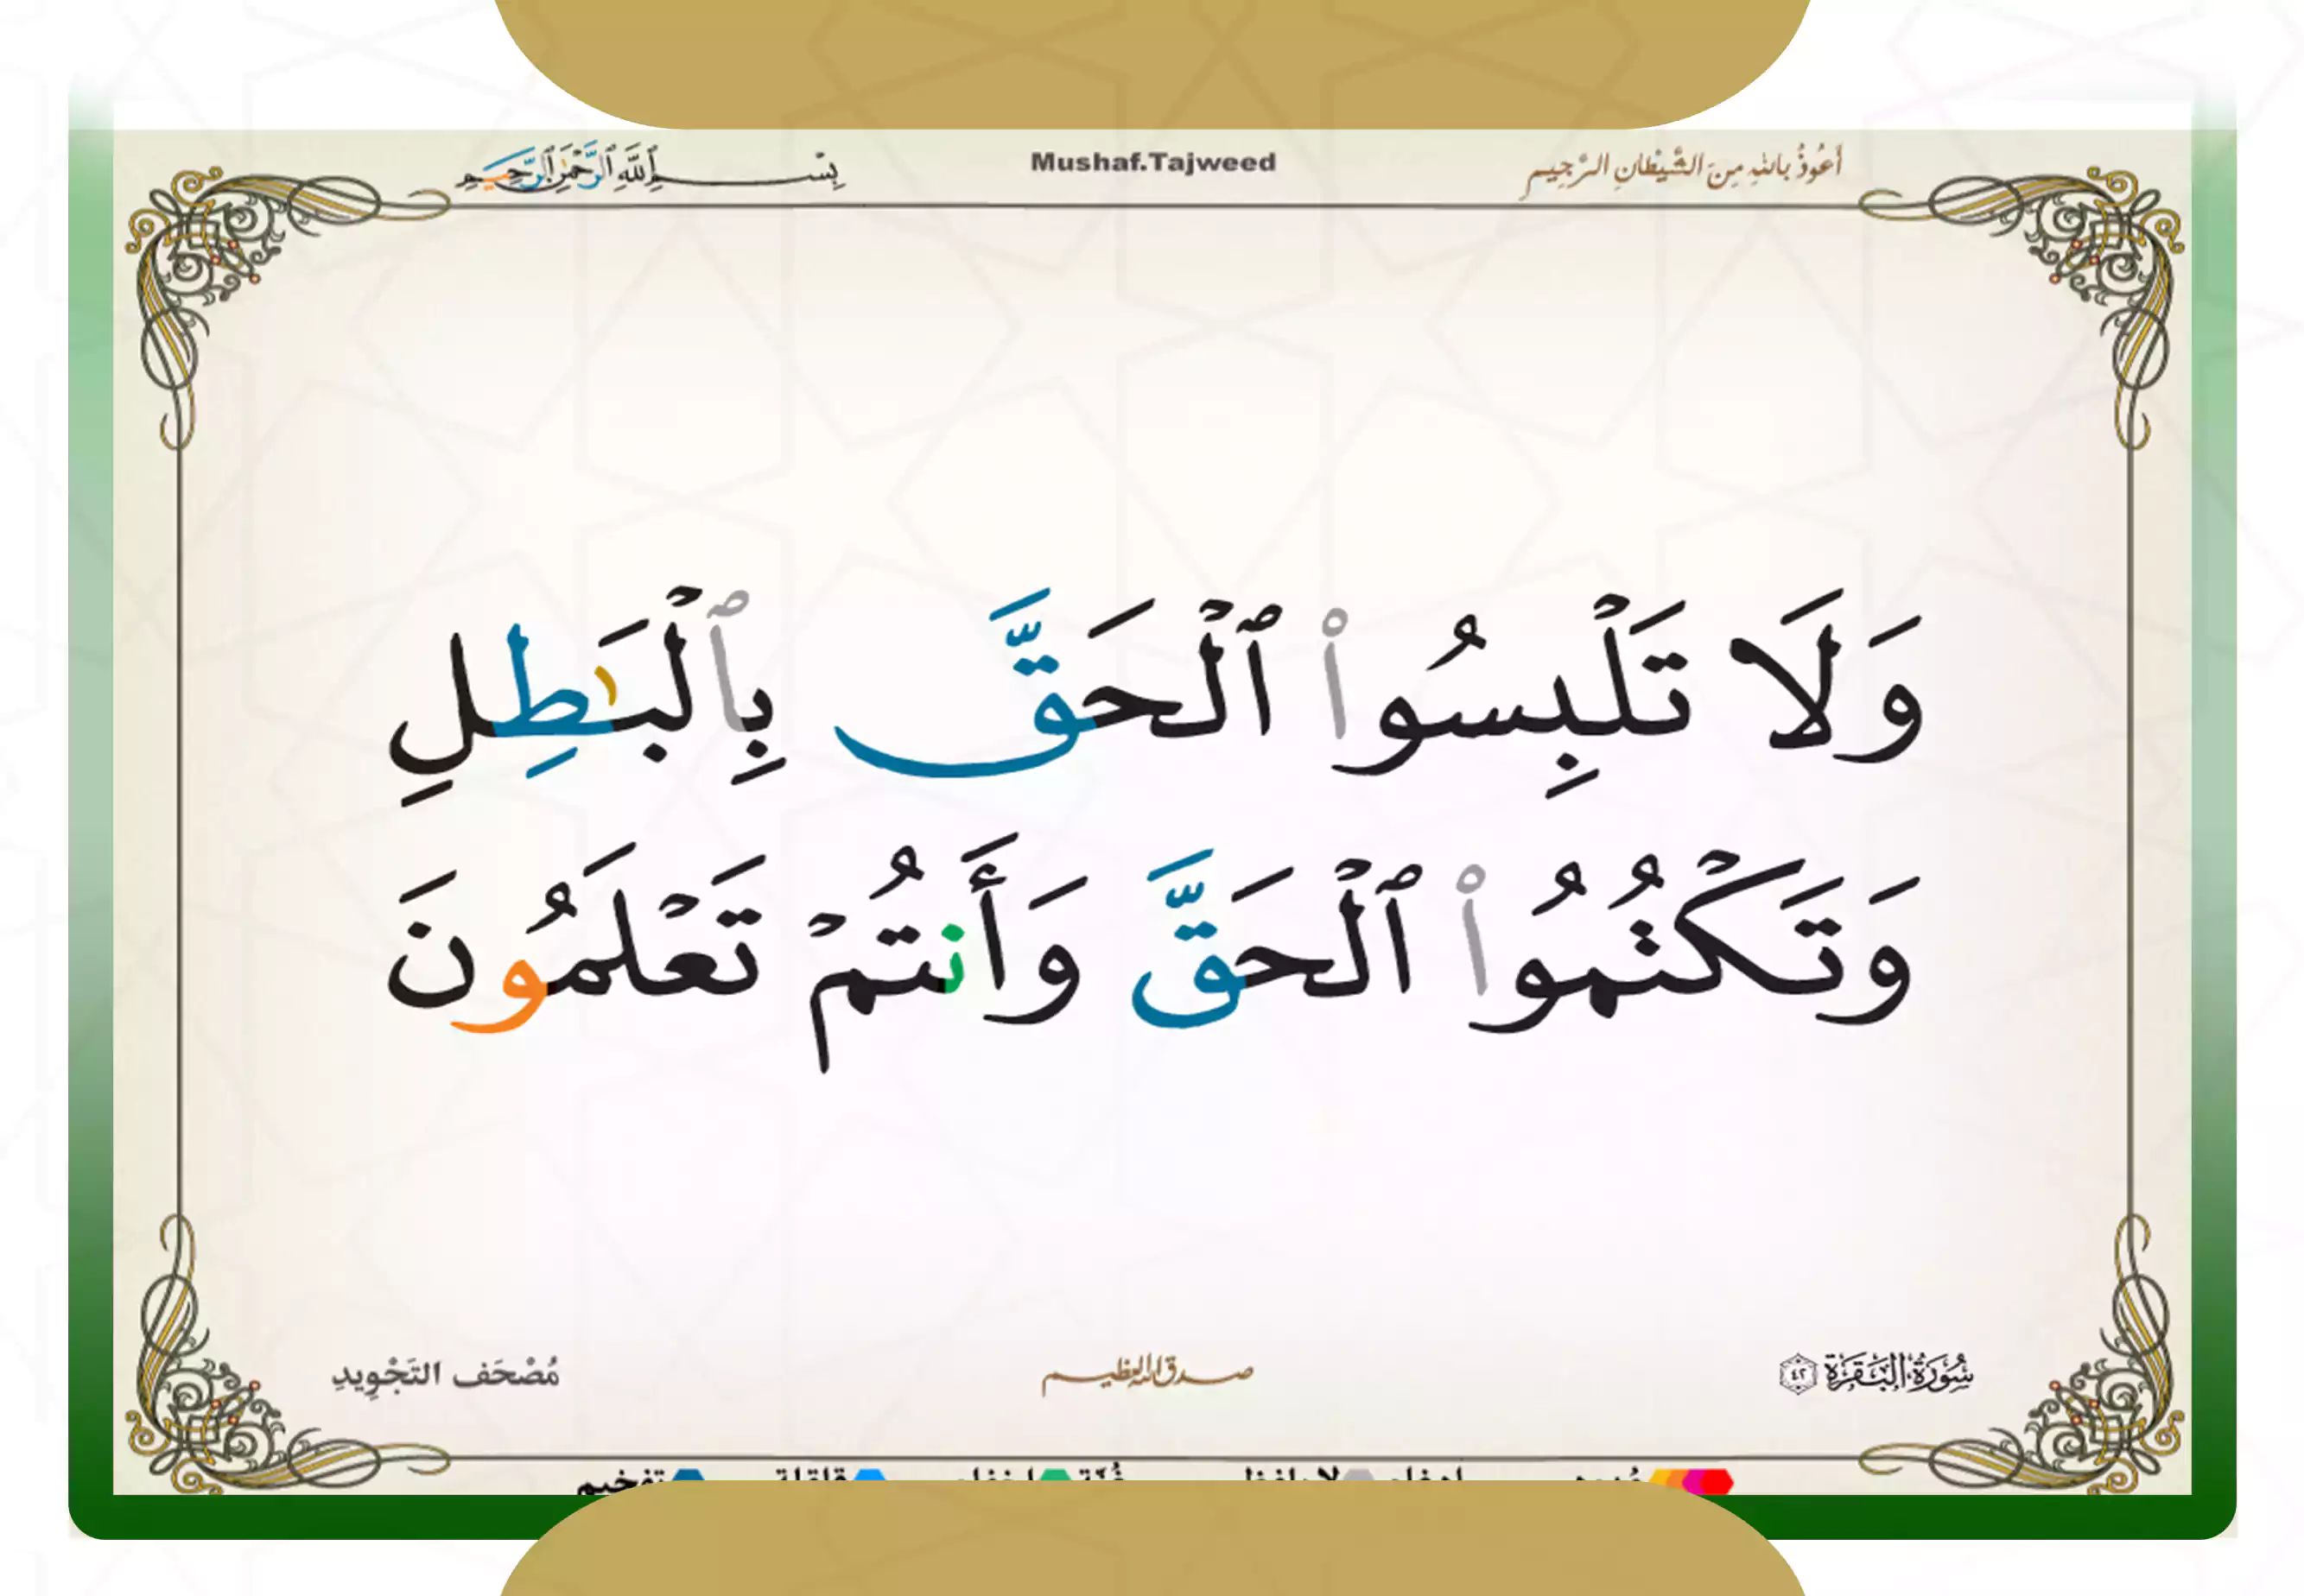 أَعُوذُ بِاللهِ مِنَ الشَّيْطَانِ الرَّجِيمِ
Mushaf.Tajweed
بِسْمِ ٱللَّهِ ٱلرَّحْمَٰنِ ٱلرَّحِيمِ
وَلَا تَلْبِسُوا۟ ٱلْحَقَّ بِٱلْبَـٰطِلِ
وَتَكْتُمُوا۟ ٱلْحَقَّ وَأَنتُمْ تَعْلَمُونَ
سُورَةُ البَقَرَةِ ٤٢
صدق الله العظيم
مُصْحَف التَجْوِيدِ
تفخيم